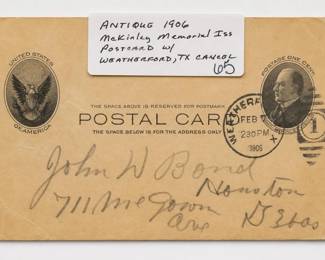 ANTIQUE 1906
McKinley Memorial Iss
POSTCARD W/
WEATHERFORD, TX CANCEL
65
UNITED STATES
OF AMERICA
POSTAGE ONE CENT
THE SPACE ABOVE IS RESERVED FOR POSTMARK
POSTAL CARD
THE SPACE BELOW IS FOR THE ADDRESS ONLY
FEB
230PM
1906
1
John W Bond
711 McGown
Ave
Houston
Texas